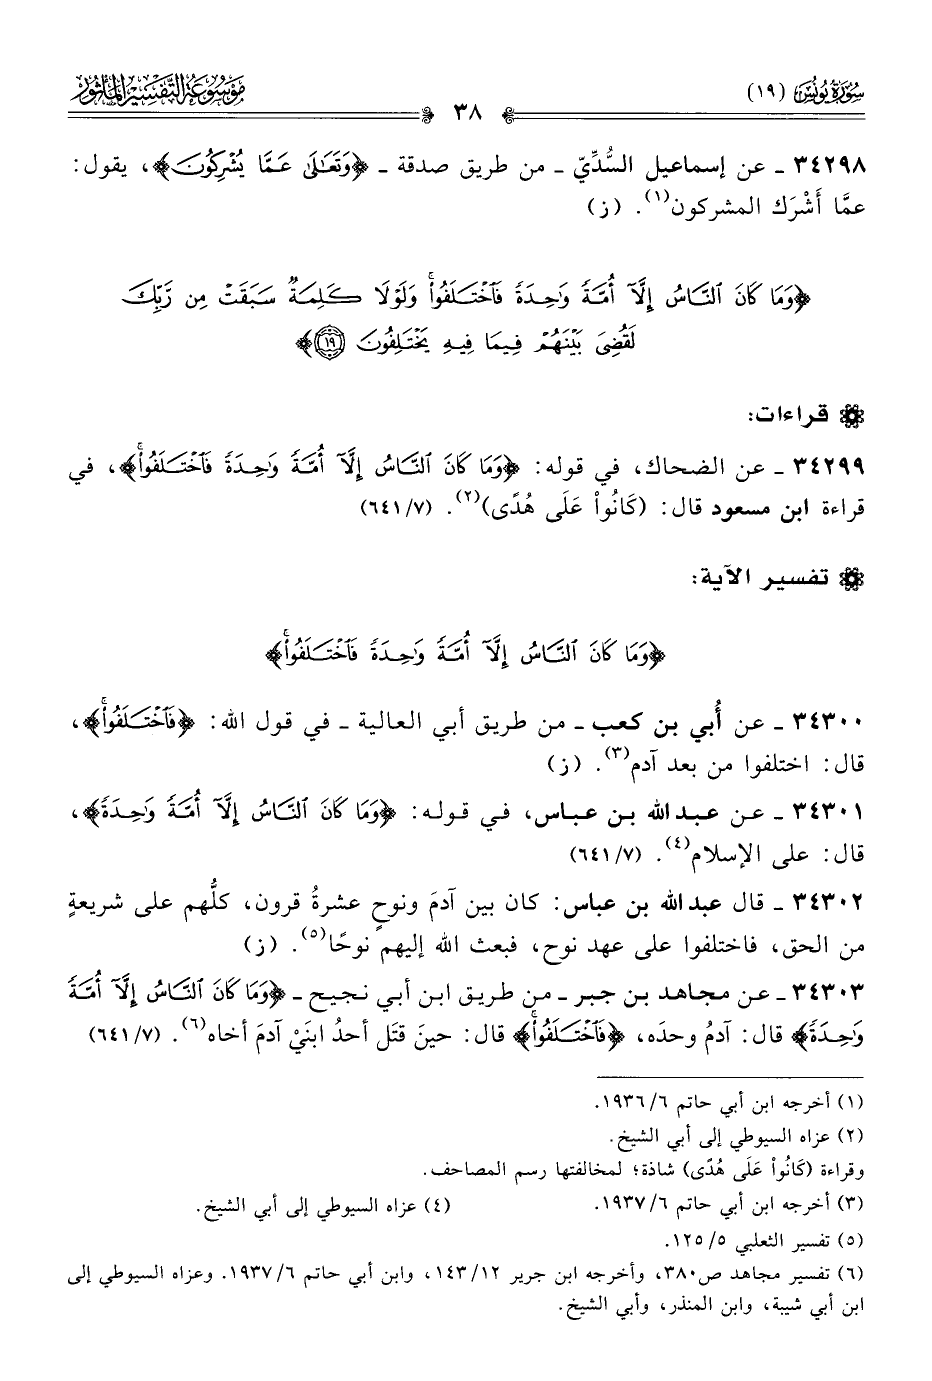 سُورَةُ يُونُسَ (١٩)
٣٨
مَوْسُوعَةُ التَّفْسِيرِ المَأْثُورِ
٣٤٢٩٨ ـ عن إسماعيل السُّدِّيّ ـ من طريق صدقة ـ ﴿وَتَعَٰلَىٰ عَمَّا يُشْرِكُونَ﴾، يقول:
عمَّا أَشْرَك المشركون(١). (ز)
﴿وَمَا كَانَ ٱلنَّاسُ إِلَّآ أُمَّةً وَٰحِدَةً فَٱخْتَلَفُوا۟ۚ وَلَوْلَا كَلِمَةٌ سَبَقَتْ مِن رَّبِّكَ
لَقُضِىَ بَيْنَهُمْ فِيمَا فِيهِ يَخْتَلِفُونَ ١٩﴾
قراءات:
٣٤٢٩٩ ـ عن الضحاك، في قوله: ﴿وَمَا كَانَ ٱلنَّاسُ إِلَّآ أُمَّةً وَٰحِدَةً فَٱخْتَلَفُوا۟ۚ﴾، في
قراءة ابن مسعود قال: (كَانُواْ عَلَى هُدًى)(٢). (٦٤١/٧)
تفسير الآية:
﴿وَمَا كَانَ ٱلنَّاسُ إِلَّآ أُمَّةً وَٰحِدَةً فَٱخْتَلَفُوا۟ۚ﴾
٣٤٣٠٠ ـ عن أُبي بن كعب ـ من طريق أبي العالية ـ في قول الله: ﴿فَٱخْتَلَفُوا۟ۚ﴾،
قال: اختلفوا من بعد آدم(٣). (ز)
٣٤٣٠١ ـ عن عبد الله بن عباس، في قوله: ﴿وَمَا كَانَ ٱلنَّاسُ إِلَّآ أُمَّةً وَٰحِدَةً﴾،
قال: على الإسلام(٤). (٦٤١/٧)
٣٤٣٠٢ ـ قال عبد الله بن عباس: كان بين آدمَ ونوحٍ عشرةُ قرون، كلُّهم على شريعةٍ
من الحق، فاختلفوا على عهد نوح، فبعث الله إليهم نوحًا(٥). (ز)
٣٤٣٠٣ ـ عن مجاهد بن جبر ـ من طريق ابن أبي نجيح ـ ﴿وَمَا كَانَ ٱلنَّاسُ إِلَّآ أُمَّةً
وَٰحِدَةً﴾ قال: آدمُ وحدَه، ﴿فَٱخْتَلَفُوا۟ۚ﴾ قال: حينَ قتَل أحدُ ابنَيْ آدمَ أخاه(٦). (٦٤١/٧)
(١) أخرجه ابن أبي حاتم ٦/ ١٩٣٦.
(٢) عزاه السيوطي إلى أبي الشيخ.
وقراءة (كَانُواْ عَلَى هُدًى) شاذة؛ لمخالفتها رسم المصاحف.
(٣) أخرجه ابن أبي حاتم ٦/ ١٩٣٧. (٤) عزاه السيوطي إلى أبي الشيخ.
(٥) تفسير الثعلبي ٥/ ١٢٥.
(٦) تفسير مجاهد ص٣٨٠، وأخرجه ابن جرير ١٢/ ١٤٣، وابن أبي حاتم ٦/ ١٩٣٧. وعزاه السيوطي إلى
ابن أبي شيبة، وابن المنذر، وأبي الشيخ.